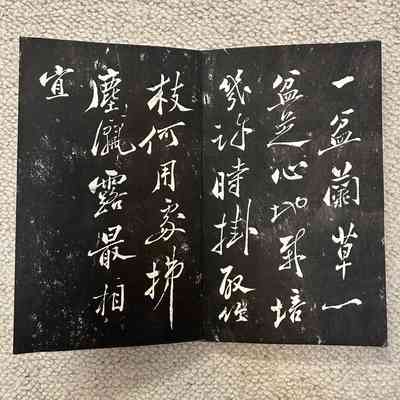 一盆蘭草一
盆芝心地栽培
幾許時掛取
枝何用處拂
塵灑露最相
宜